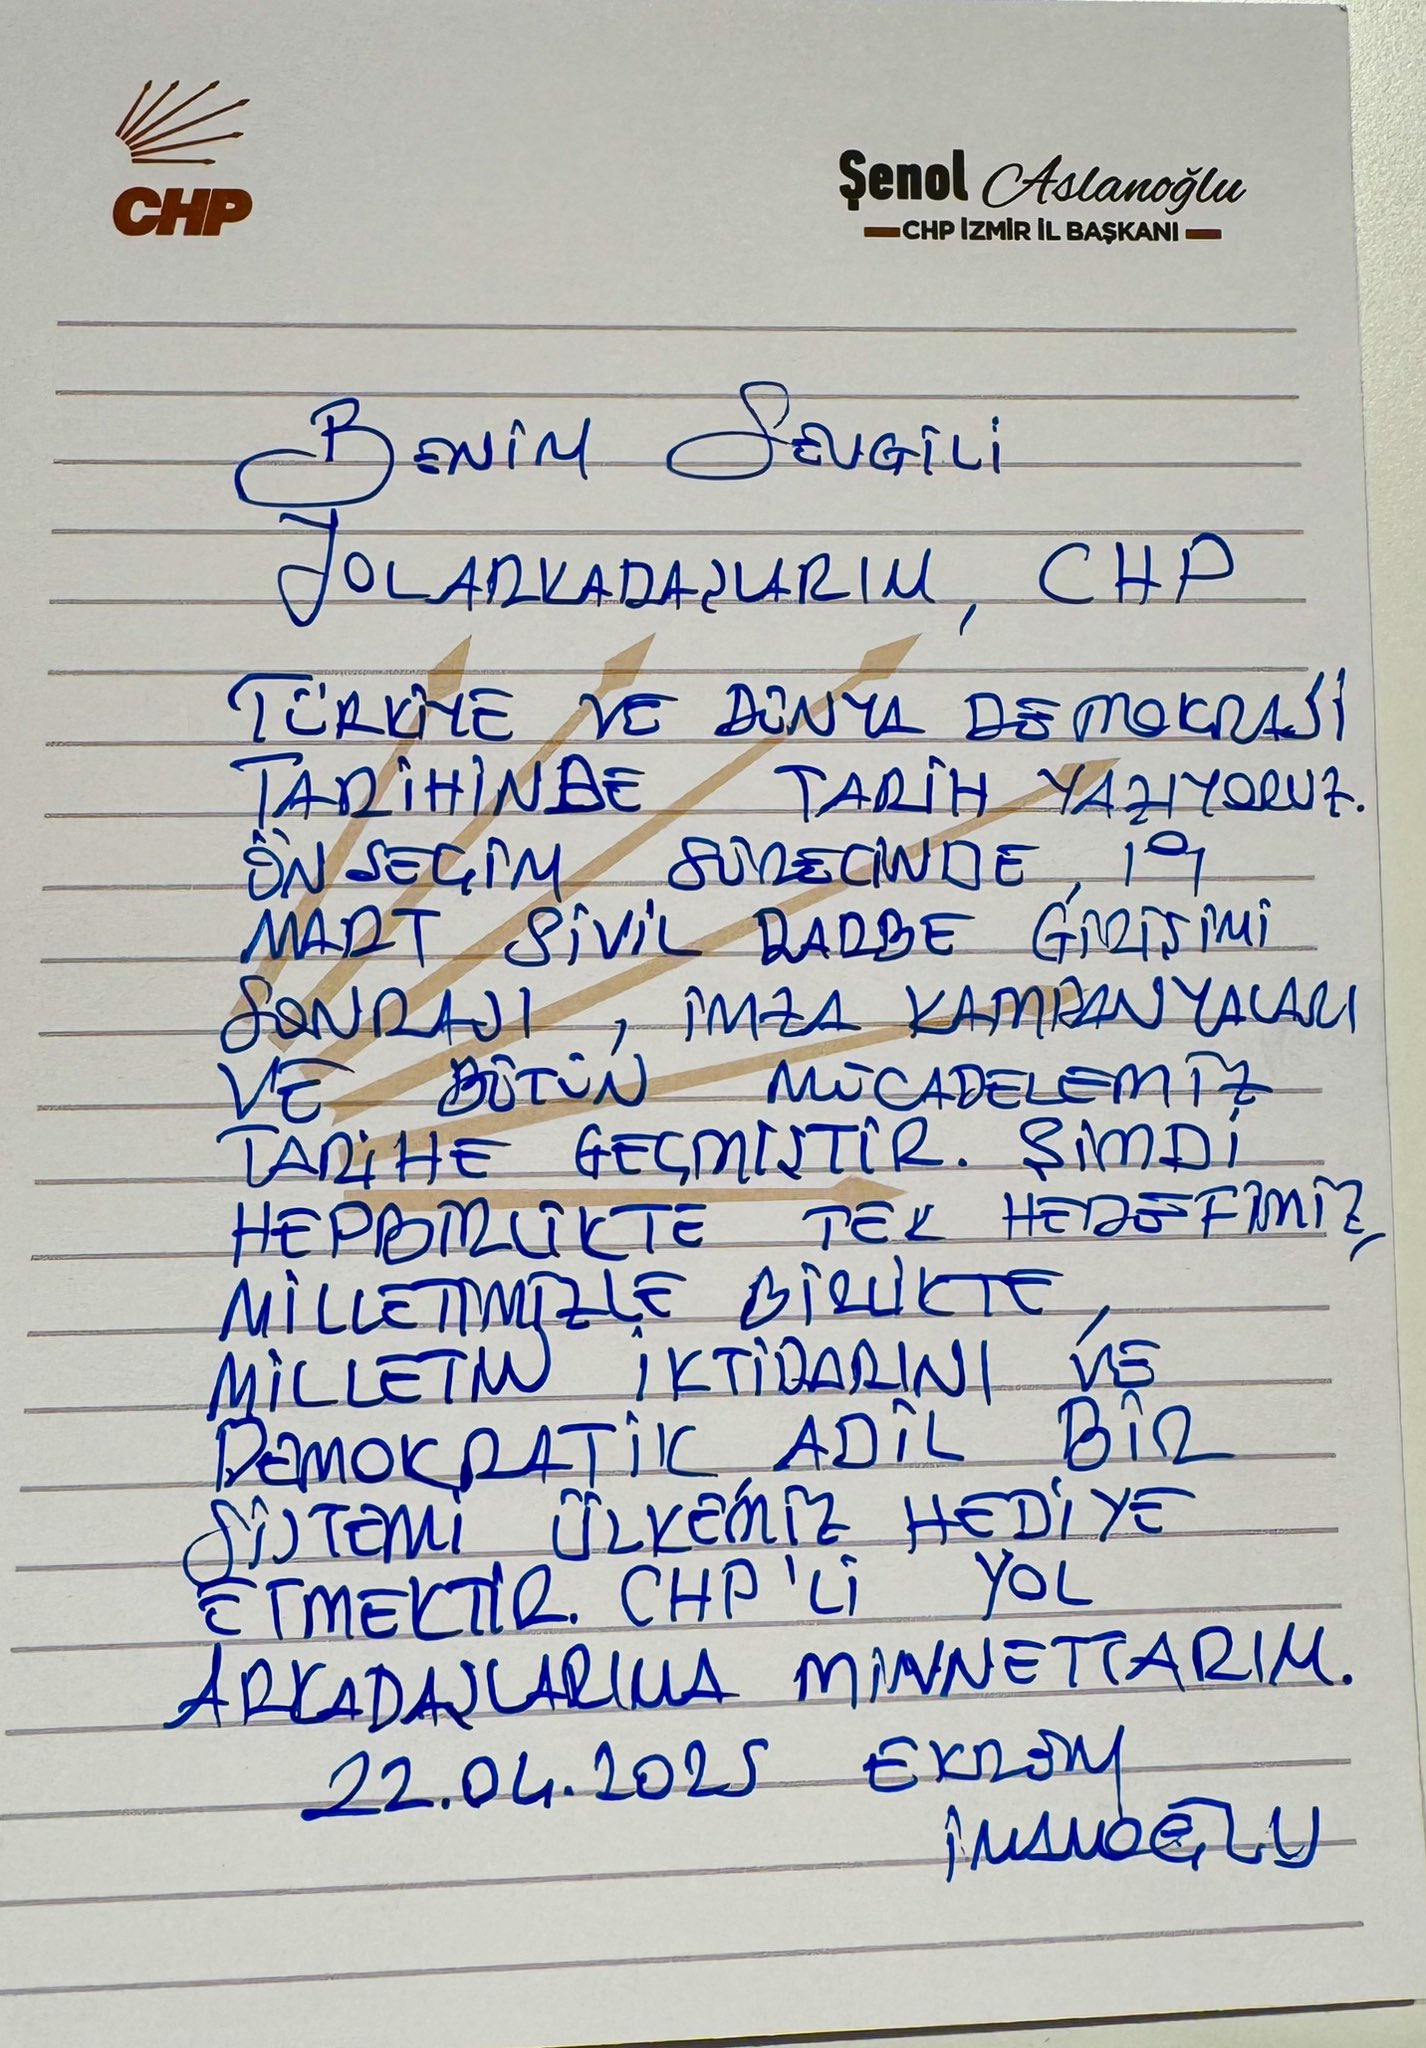 CHP
Şenol Aslanoğlu
CHP İZMİR İL BAŞKANI
BENİM SEVGİLİ
YOLARKADAŞLARIM, CHP
TÜRKİYE VE DÜNYA DEMOKRASİ
TARİHİNDE TARİH YAZIYORUZ.
ÖNSEÇİM SÜRECİNDE, 19
MART SİVİL DARBE GİRİŞİMİ
SONRASI, İMZA KAMPANYALARI
VE BÜTÜN MÜCADELEMİZ
TARİHE GEÇMİŞTİR. ŞİMDİ
HEPBİRLİKTE TEK HEDEFİMİZ,
MİLLETİMİZLE BİRLİKTE,
MİLLETİN İKTİDARINI VE
DEMOKRATİK ADİL BİR
SİSTEMİ ÜLKEMİZ HEDİYE
ETMEKTİR. CHP'Lİ YOL
ARKADAŞLARIMA MİNNETTARIM.
22.04.2025 EKREM
İMAMOĞLU